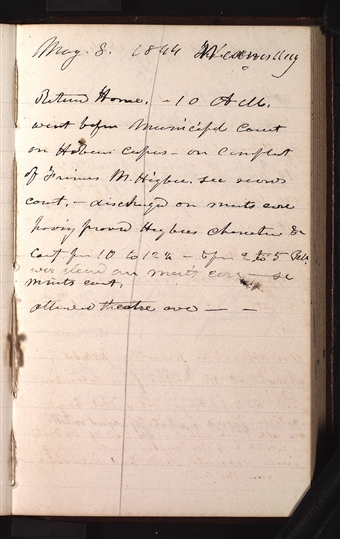 May. 8. 1844 Wednesday
Return Home. - 10 A.M.
went before Municipal Court
on Habeus Corpus - on complaint
of Francis M. Higbee. see records
court, - discharged on merits case
having proved Higbees character &c
Court from 10 to 12½ - & from 2 to 5
merits case - see
minuts court.
attended theatre eve — —